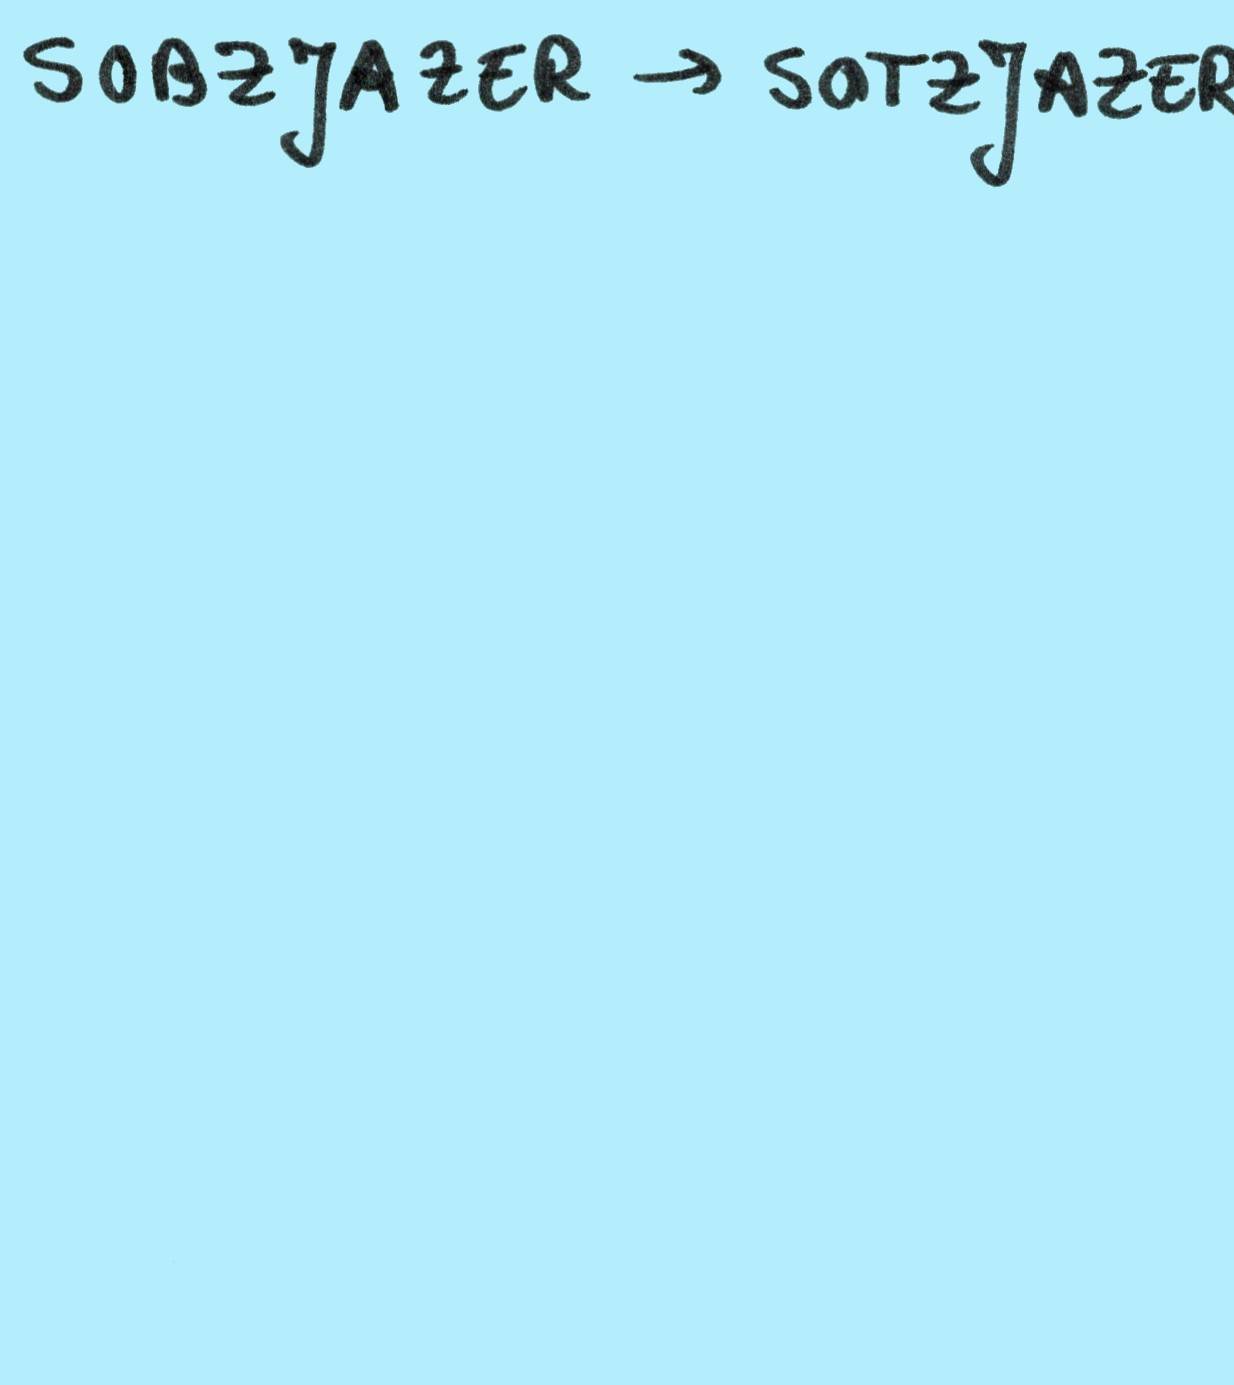 SOBZJAZER → SOTZJAZER